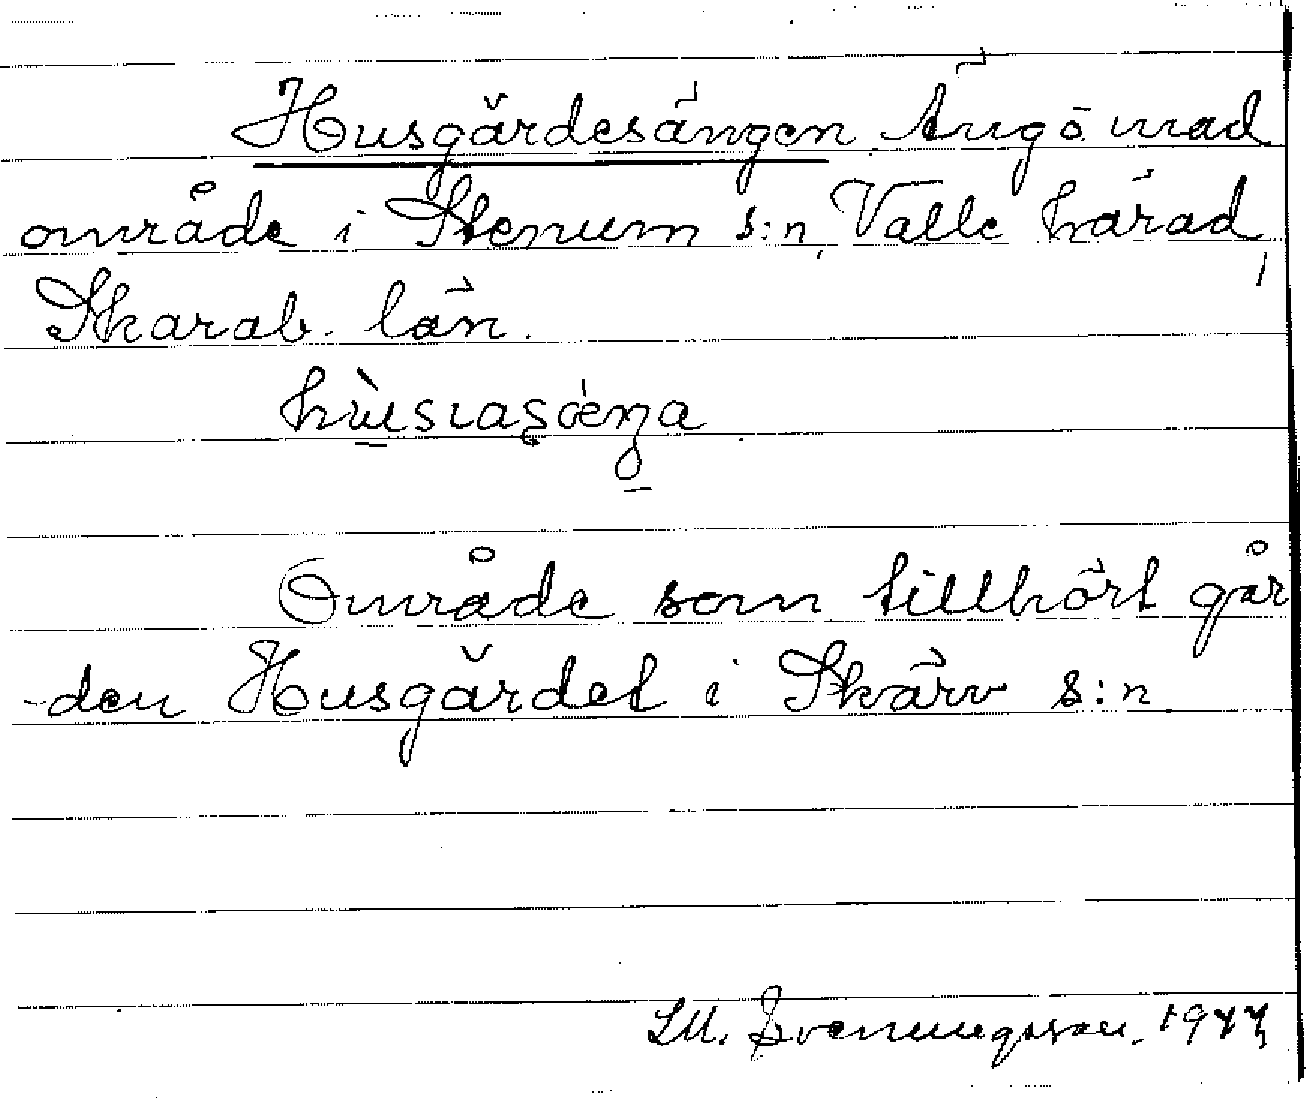 Husgärdesängen Äng o. mad
område i Stenum s:n, Valle härad,
Skarab. län.
Område som tillhört går
-den Husgärdet i Skärv s:n
Svenungsson. 1944